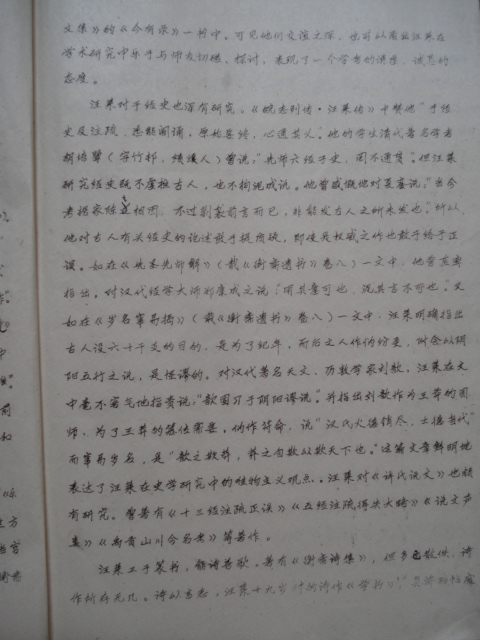 文集》的《今有录》一书中。可见他们交谊之深，也可以看出汪莱在
学术研究中乐于与师友切磋、探讨，表现了一个学者的谦虚、诚恳的
态度。
汪莱对于经史也深有研究。《皖志列传·汪莱传》中赞他“于经
史及注疏，悉能闇诵，原始要终，心通其义。”他的学生清代著名学者
胡培翚（字竹邨，绩溪人）曾说，“先师六经子史，罔不通贯。”但汪莱
研究经史既不盲推古人，也不拘泥成说。他曾感慨地对夏銮说，“当今
考据家陈陈相因，不过剿袭前言而已，非能发古人之所未发也。”所以，
他对古人有关经史的论述敢于提质疑，即使是权威之作也敢于给予正
误。如在《 》（载《衡斋遗书》卷八）一文中，他曾直率
指出，对汉代经学大师郑康成之说，“明其意可也，泥其言不可也。”又
如在《岁名寓易摘》（载《衡斋遗书》卷八）一文中，汪莱明确指出
古人设六十干支的目的，是为了纪年，而后之人作伪纷更，附会以阴
阳五行之说，是怪谬的。对汉代著名天文、历数学家刘歆，汪莱在文
中毫不客气地指责说，“歆固习于阴阳谬说。”并指出刘歆作为王莽的国
师，为了王莽的篡位需要，伪作符命，说“汉代火德销尽，土德当代”
而寓易岁名，是“歆之欺莽，莽之勾歆以欺天下也。”这篇文章鲜明地
表达了汪莱在史学研究中的唯物主义观点。汪莱对《许氏说文》也颇
有研究。曾著有《十三经注疏正误》《五经注疏得失大略》《说文声
类》《禹贡山川今名考》等著作。
汪莱工于篆书，能诗善歌。著有《衡斋诗集》，但多已散佚，诗
作所存无几。诗以言志，汪莱十九岁时